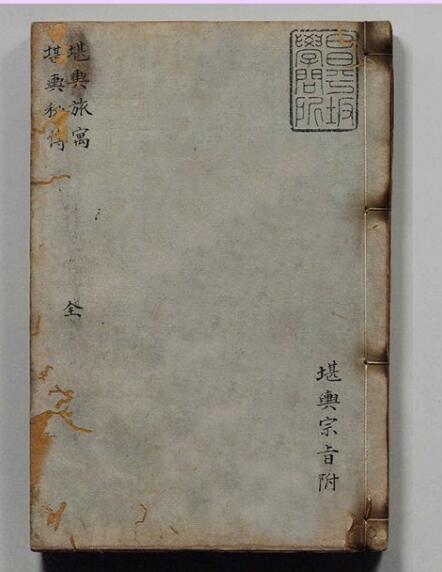 昌平坂
學問所
堪輿宗旨附
堪輿旅寓
堪輿
全